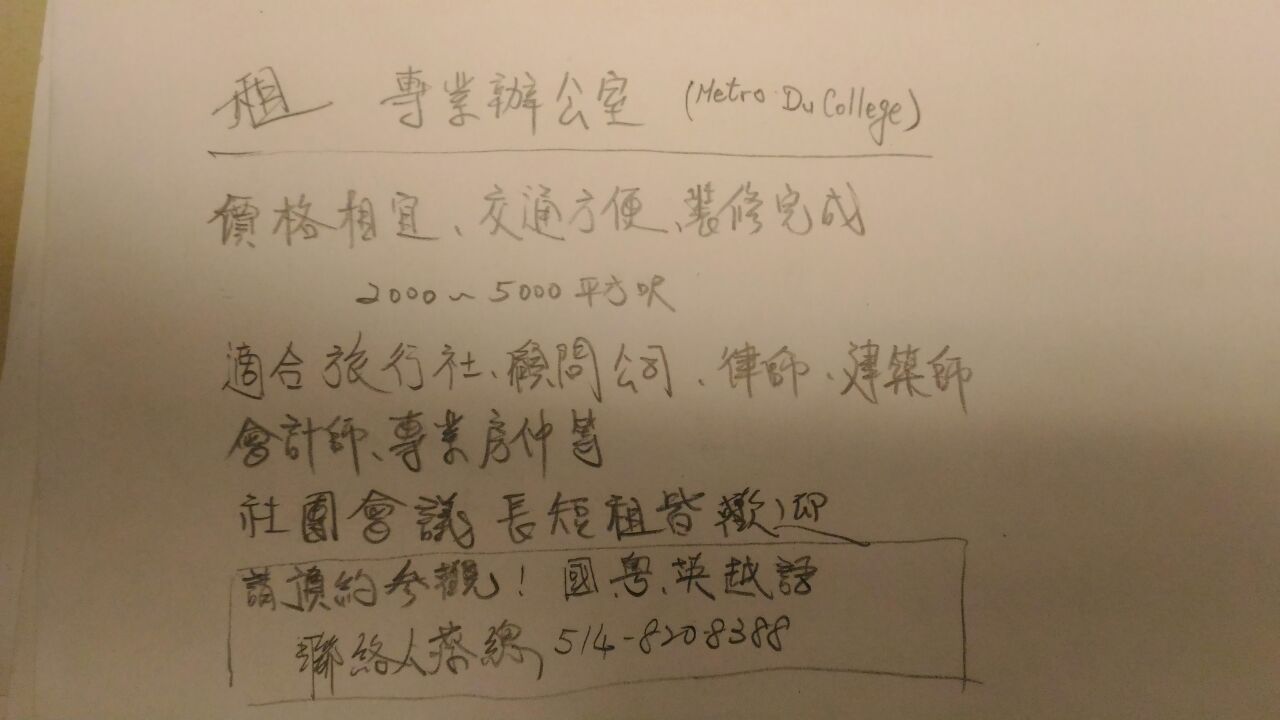 租 專業辦公室 (Metro Du College)
價格相宜、交通方便、裝修完成
2000~5000平方呎
適合旅行社、顧問公司、律師、建築師
會計師、專業房仲等
社團會議 長短租皆歡迎
請預約參觀! 國、粤、英越語
聯絡人蔡 514-820-8388